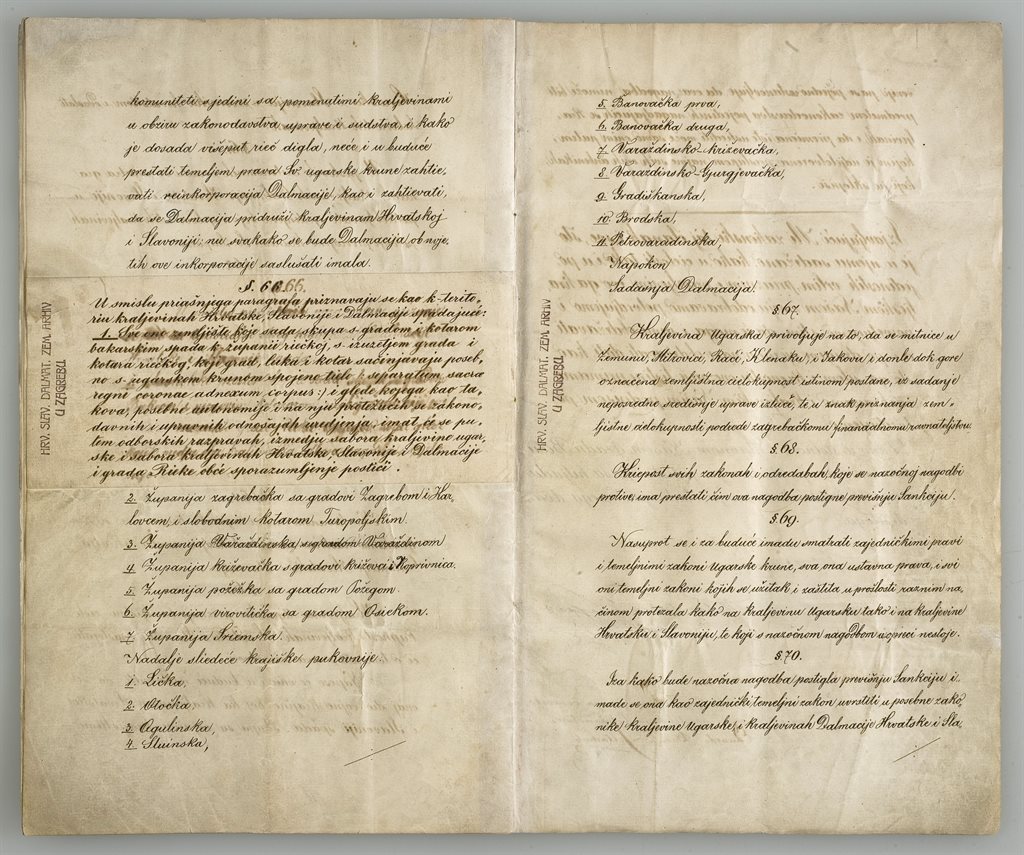 komuniteti sjedini sa pomenutimi kraljevinami
u obziru zakonodavstva, uprave i sudstva, i kako
je dosada višeput rieč digla, neće i u buduće
prestati temeljem prava Sv. ugarske krune zahtie,
vati reinkorporacija Dalmacije, kao i zahtievati,
da se Dalmacija pridruži kraljevinam Hrvatskoj
i Slavoniji; nu svakako se bude Dalmacija ob uvje,
tih ove inkorporacije saslušati imala.
§. 66.
U smislu priašnjega paragrafa priznavaju se kao k terito-
riu kraljevinah Hrvatske, Slavonije i Dalmacije spadajuće:
1. Sve ono zemljište, koje sada skupa s gradom i kotarom
bakarskim spada k županii riečkoj, s izuzetjem grada i
kotara riečkog, koji grad, luka i kotar sačinjavaju poseb,
no s ugarskom krunom spojeno tielo (: separatum sacra
regni coronae adnexum corpus :) i glede kojega kao ta-
kova, posebne autonomije i na nju protežućih se zakono-
davnih i upravnih odnošajah uredjenja, imat će se pu-
tem odborskih razpravah, izmedju sabora kraljevine ugar,
ske i sabora kraljevinah Hrvatske, Slavonije i Dalmacije
i grada Rieke obće sporazumljenje postići.
2. Županija zagrebačka sa gradovi Zagrebom i Kar,
lovcem, i slobodnim kotarom Turopoljskim.
3. Županija Varaždinska s gradom Varaždinom
4. Županija križevačka s gradovi križevci i Koprivnica.
5. Županija požežka sa gradom Požegom.
6. Županija virovitička sa gradom Osiekom.
7. Županija Sriemska.
Nadalje sliedeće krajiške pukovnije
1. Lička,
2. Otočka,
3. Ogulinska,
4. Sluinska,
HRV. SLAV. DALMAT. ZEM. ARHIV
U ZAGREBU.
5. Banovačka prva,
6. Banovačka druga,
7. Varaždinsko-križevačka,
8. Varaždinsko-Gjurgjevačka,
9. Gradiškanska,
10. Brodska,
11. Petrovaradinska,
Napokon
Sadašnja Dalmacija.
§. 67.
Kraljevina Ugarska privoljuje na to, da se mitnice u
Zemunu, Mitrovici, Rači, Klenaku, i Jakovu i donle dok gore
označena zemljištna cielokupnost istinom postane, iz sadanje
neposredne središnje uprave izluči, te u znak priznanja zem-
ljištne cielokupnosti podrede zagrebačkomu financialnomu ravnateljstvu.
§. 68.
Kriepost svih zakonah i odredabah, koje se nazočnoj nagodbi
protive, ima prestati čim ova nagodba postigne previšnju Sankciju.
§. 69.
Nasuprot se i za buduća imadu smatrati zajedničkimi pravi
i temeljnimi zakoni Ugarske krune, sva ona ustavna prava, i svi
oni temeljni zakoni kojih se užitak i zaštita u prošlosti raznim na,
činom protezala kako na kraljevinu Ugarsku tako i na kraljevine
Hrvatsku i Slavoniju, te koji s nazočnom nagodbom u opreci nestoje.
§. 70.
Iza kako bude nazočna nagodba postigla previšnju Sankciju i,
made se ona kao zajednički temeljni zakon uvrstiti u posebne zako,
nike kraljevine Ugarske, i kraljevinah Dalmacije Hrvatske i Sla,
HRV. SLAV. DALMAT. ZEM. ARHIV
U ZAGREBU.